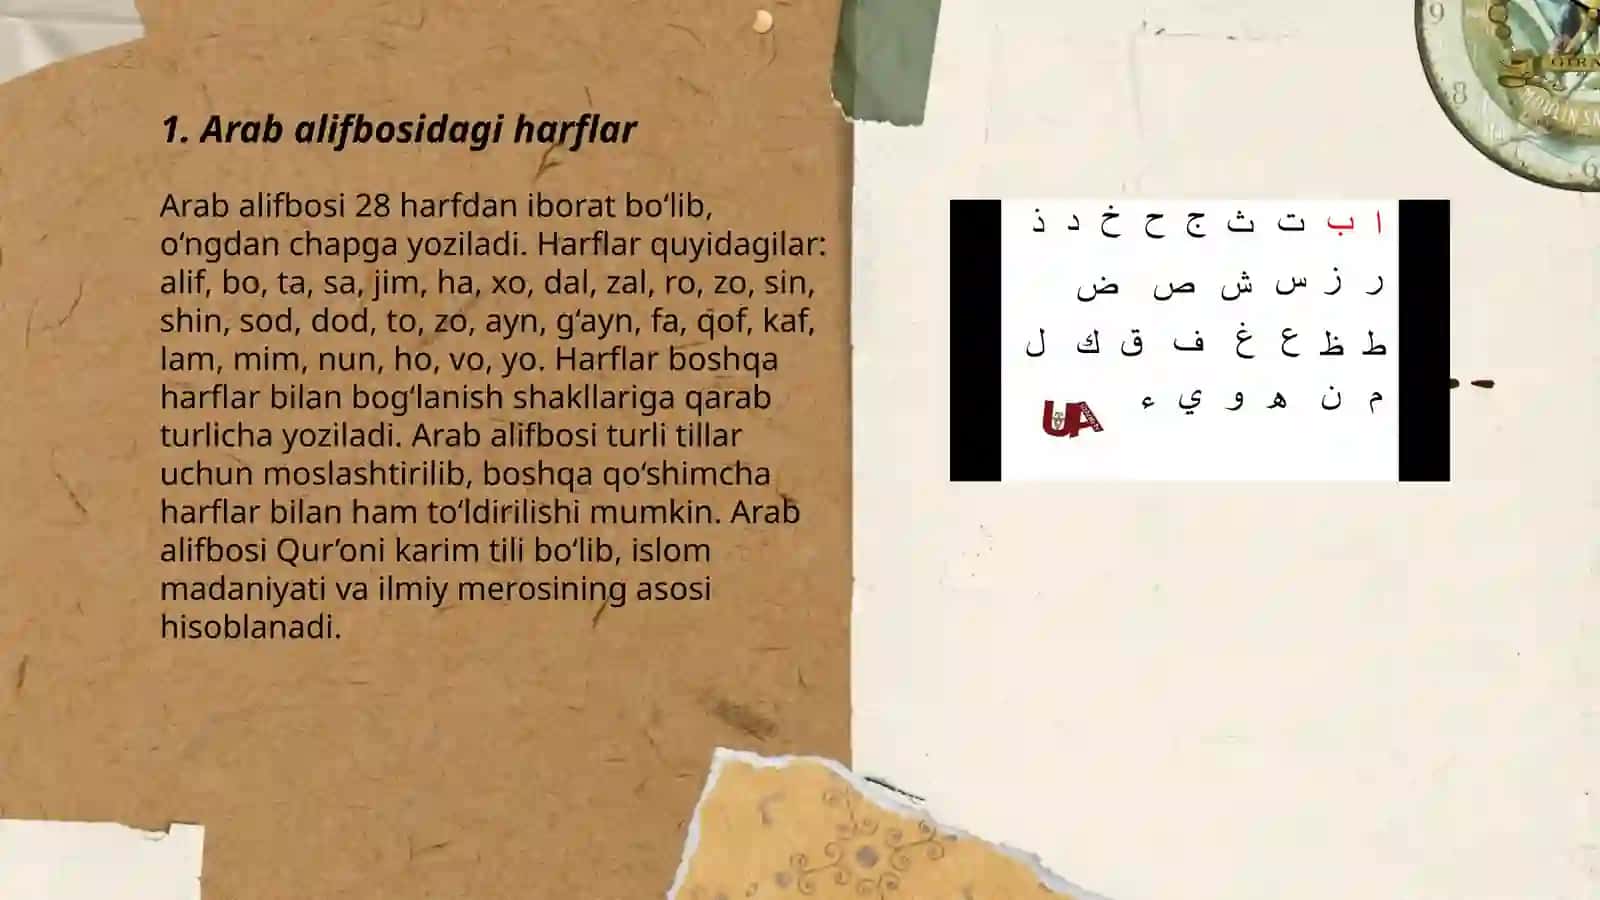 1. Arab alifbosidagi harflar
Arab alifbosi 28 harfdan iborat bo‘lib,
o‘ngdan chapga yoziladi. Harflar quyidagilar:
alif, bo, ta, sa, jim, ha, xo, dal, zal, ro, zo, sin,
shin, sod, dod, to, zo, ayn, g‘ayn, fa, qof, kaf,
lam, mim, nun, ho, vo, yo. Harflar boshqa
harflar bilan bog‘lanish shakllariga qarab
turlicha yoziladi. Arab alifbosi turli tillar
uchun moslashtirilib, boshqa qo‘shimcha
harflar bilan ham to‘ldirilishi mumkin. Arab
alifbosi Qur’oni karim tili bo‘lib, islom
madaniyati va ilmiy merosining asosi
hisoblanadi.
ا ب ت ث ج ح خ د ذ
ر ز س ش ص ض
ط ظ ع غ ف ق ك ل
م ن ه و ي ء
UA
9
8
6